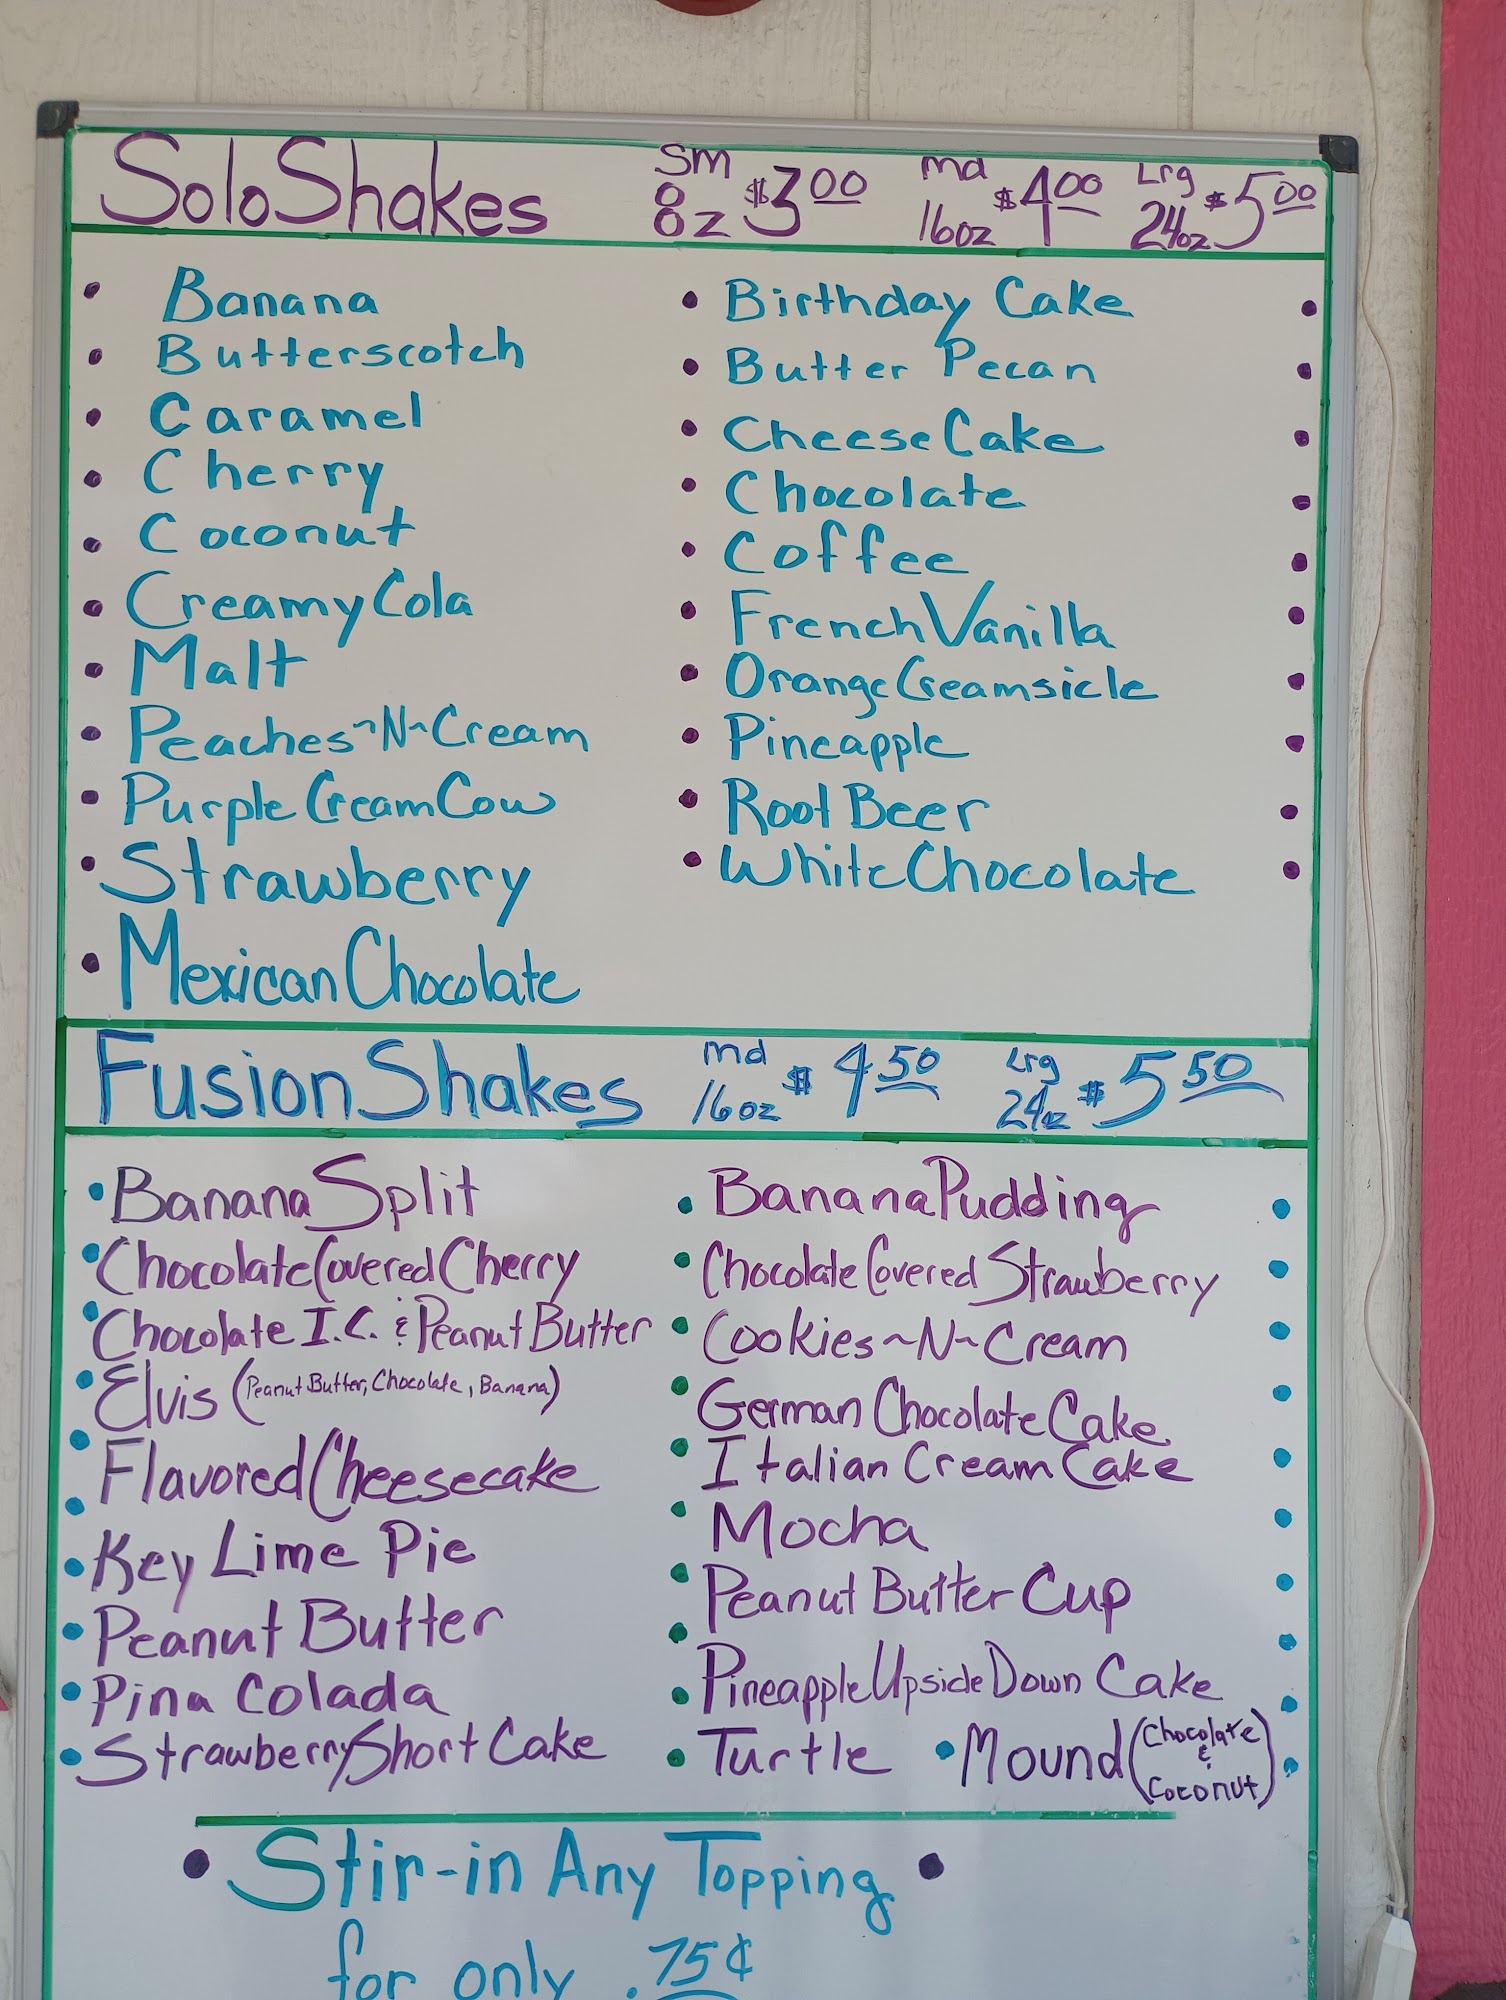 Solo Shakes Sm 8oz $3.00 Md 16oz $4.00 Lrg 24oz $5.00
• Banana
• Butterscotch
• Caramel
• Cherry
• Coconut
• Creamy Cola
• Malt
• Peaches~N~Cream
• Purple Cream Cow
• Strawberry
• Mexican Chocolate
• Birthday Cake
• Butter Pecan
• Cheese Cake
• Chocolate
• Coffee
• French Vanilla
• Orange Creamsicle
• Pineapple
• Root Beer
• White Chocolate
Fusion Shakes Md 16oz $4.50 Lrg 24oz $5.50
• Banana Split
• Chocolate Covered Cherry
• Chocolate I.C. & Peanut Butter
• Elvis (Peanut Butter, Chocolate, Banana)
• Flavored Cheesecake
• Key Lime Pie
• Peanut Butter
• Pina Colada
• Strawberry Short Cake
• Banana Pudding
• Chocolate Covered Strawberry
• Cookies~N~Cream
• German Chocolate Cake
• Italian Cream Cake
• Mocha
• Peanut Butter Cup
• Pineapple Upside Down Cake
• Turtle • Mound (Chocolate & Coconut)
• Stir-in Any Topping •
for only .75¢